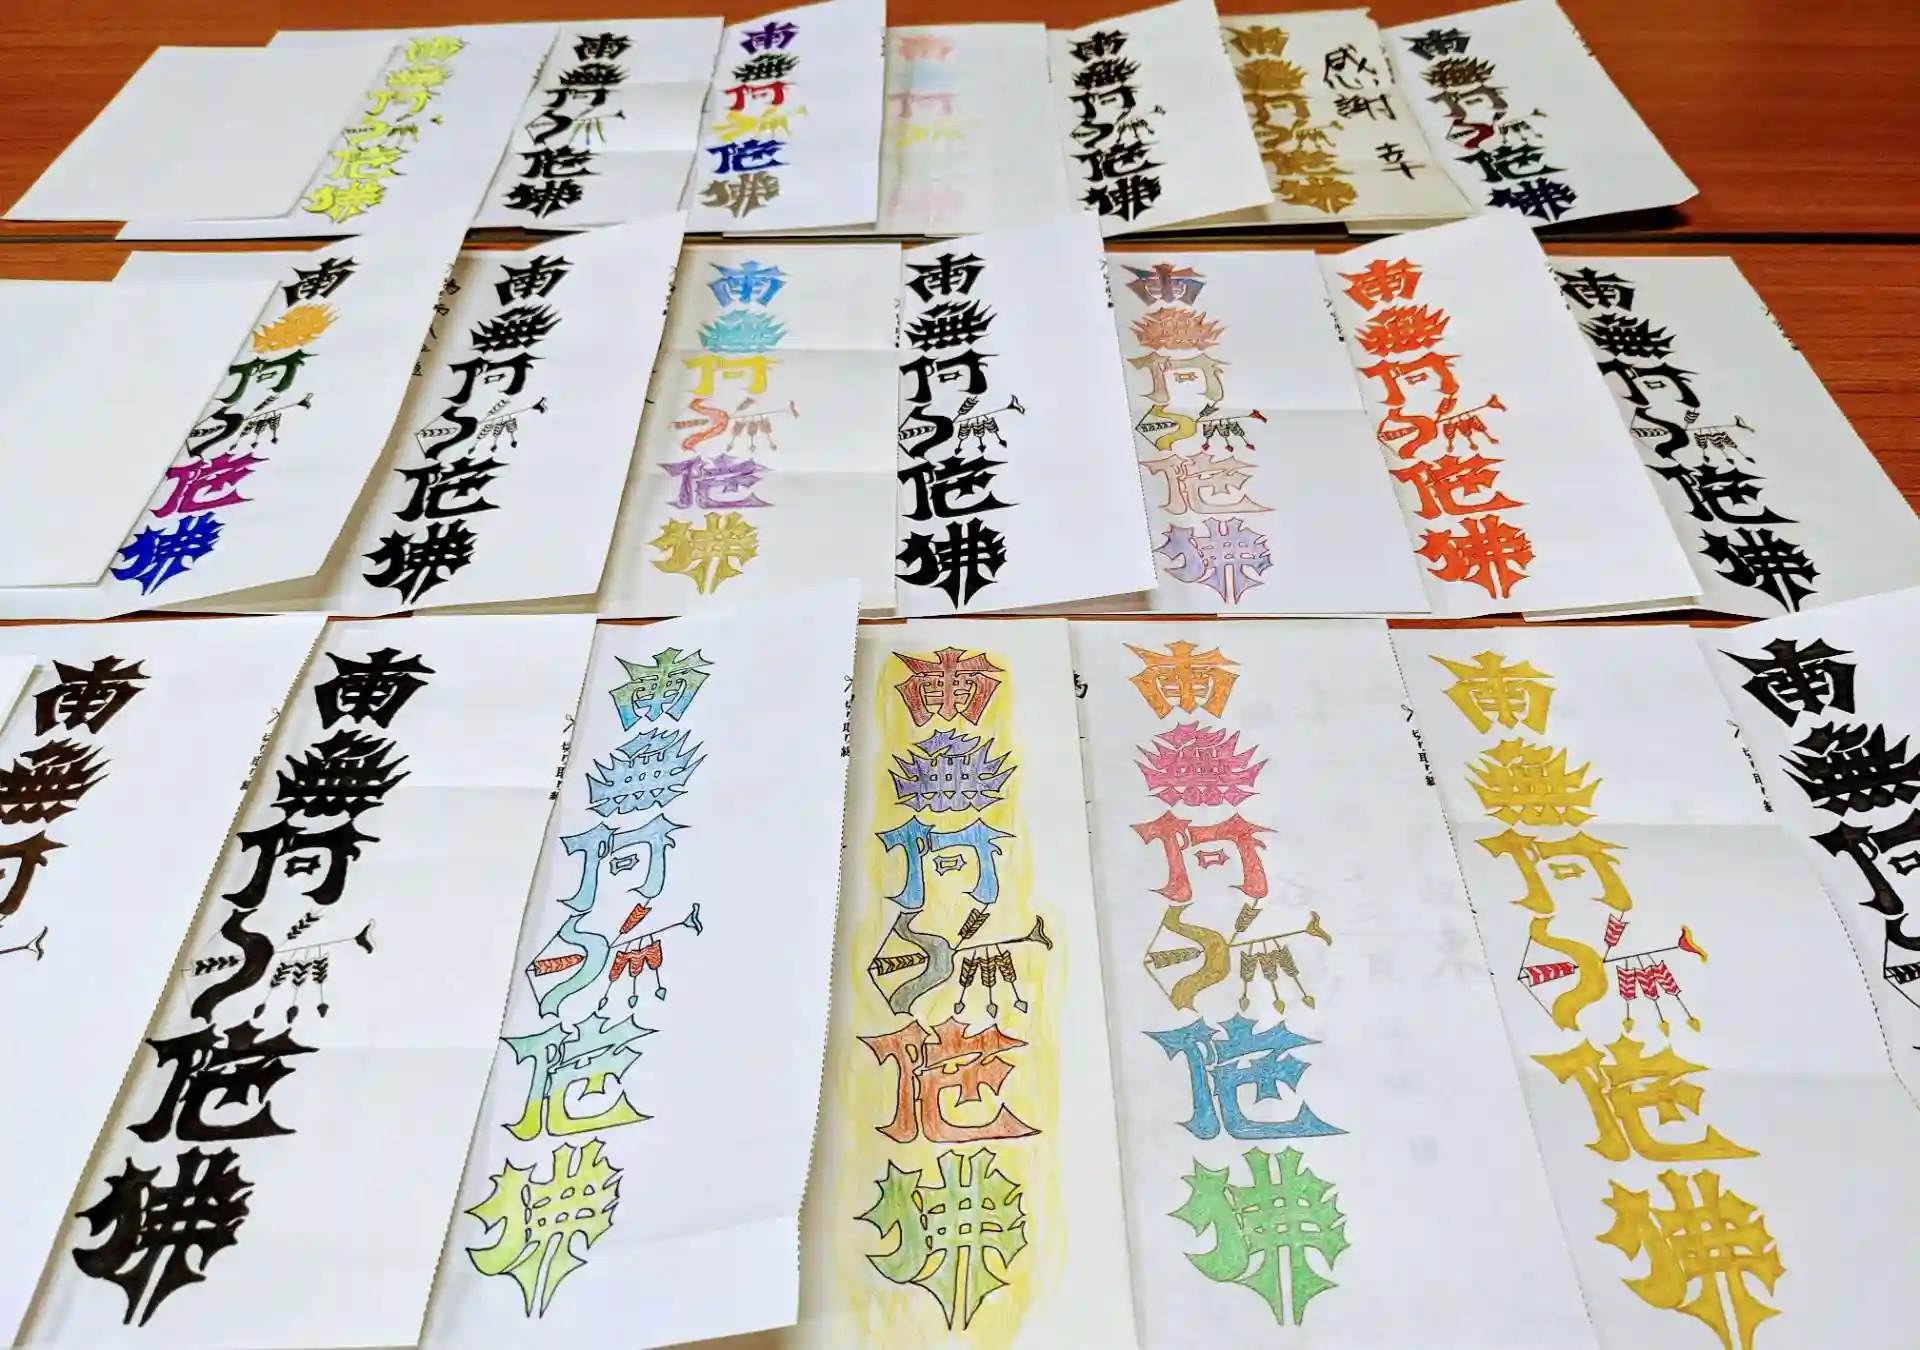 南無阿弥陀佛
南無阿弥陀佛
南無阿弥陀佛
南無阿弥陀佛
南無阿弥陀佛
南無阿弥陀佛
感謝
幸
南無阿弥陀佛
南無阿弥陀佛
南無阿弥陀佛
南無阿弥陀佛
南無阿弥陀佛
南無阿弥陀佛
南無阿弥陀佛
南無阿弥陀佛
南無阿
切り取り線
南無阿弥陀佛
切り取り線
南無阿弥陀佛
切り取り線
南無阿弥陀佛
南無阿弥陀佛
切り取り線
南無阿弥陀佛
切り取り線
南無阿